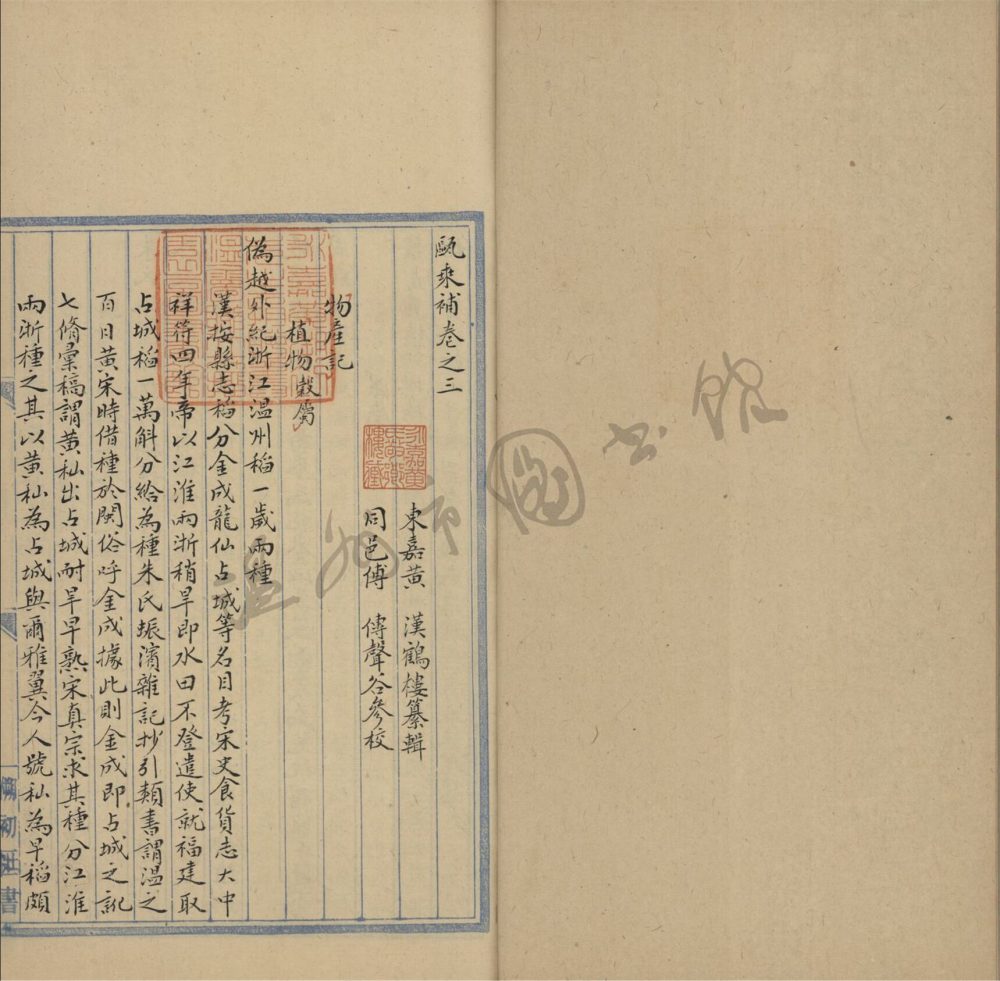 甌乘補卷之三
東嘉黃　漢鶴樓纂輯
同邑傅　傳聲谷參校
物產記
植物穀屬
偽越外紀浙江温州稻一歲兩種
漢按縣志稻分金成龍仙占城等名目考宋史食貨志大中
祥符四年帝以江淮兩浙稍旱即水田不登遣使就福建取
占城稻一萬斛分給為種朱氏振濱雜記抄引類書謂温之
百日黃宋時借種於閩俗呼金成據此則金成即占城之訛
七脩彙稿謂黃秈出占城耐旱早熟宋真宗求其種分江淮
兩浙種之其以黃秈為占城與爾雅翼今人號秈為早稻頗
温州市圖書館